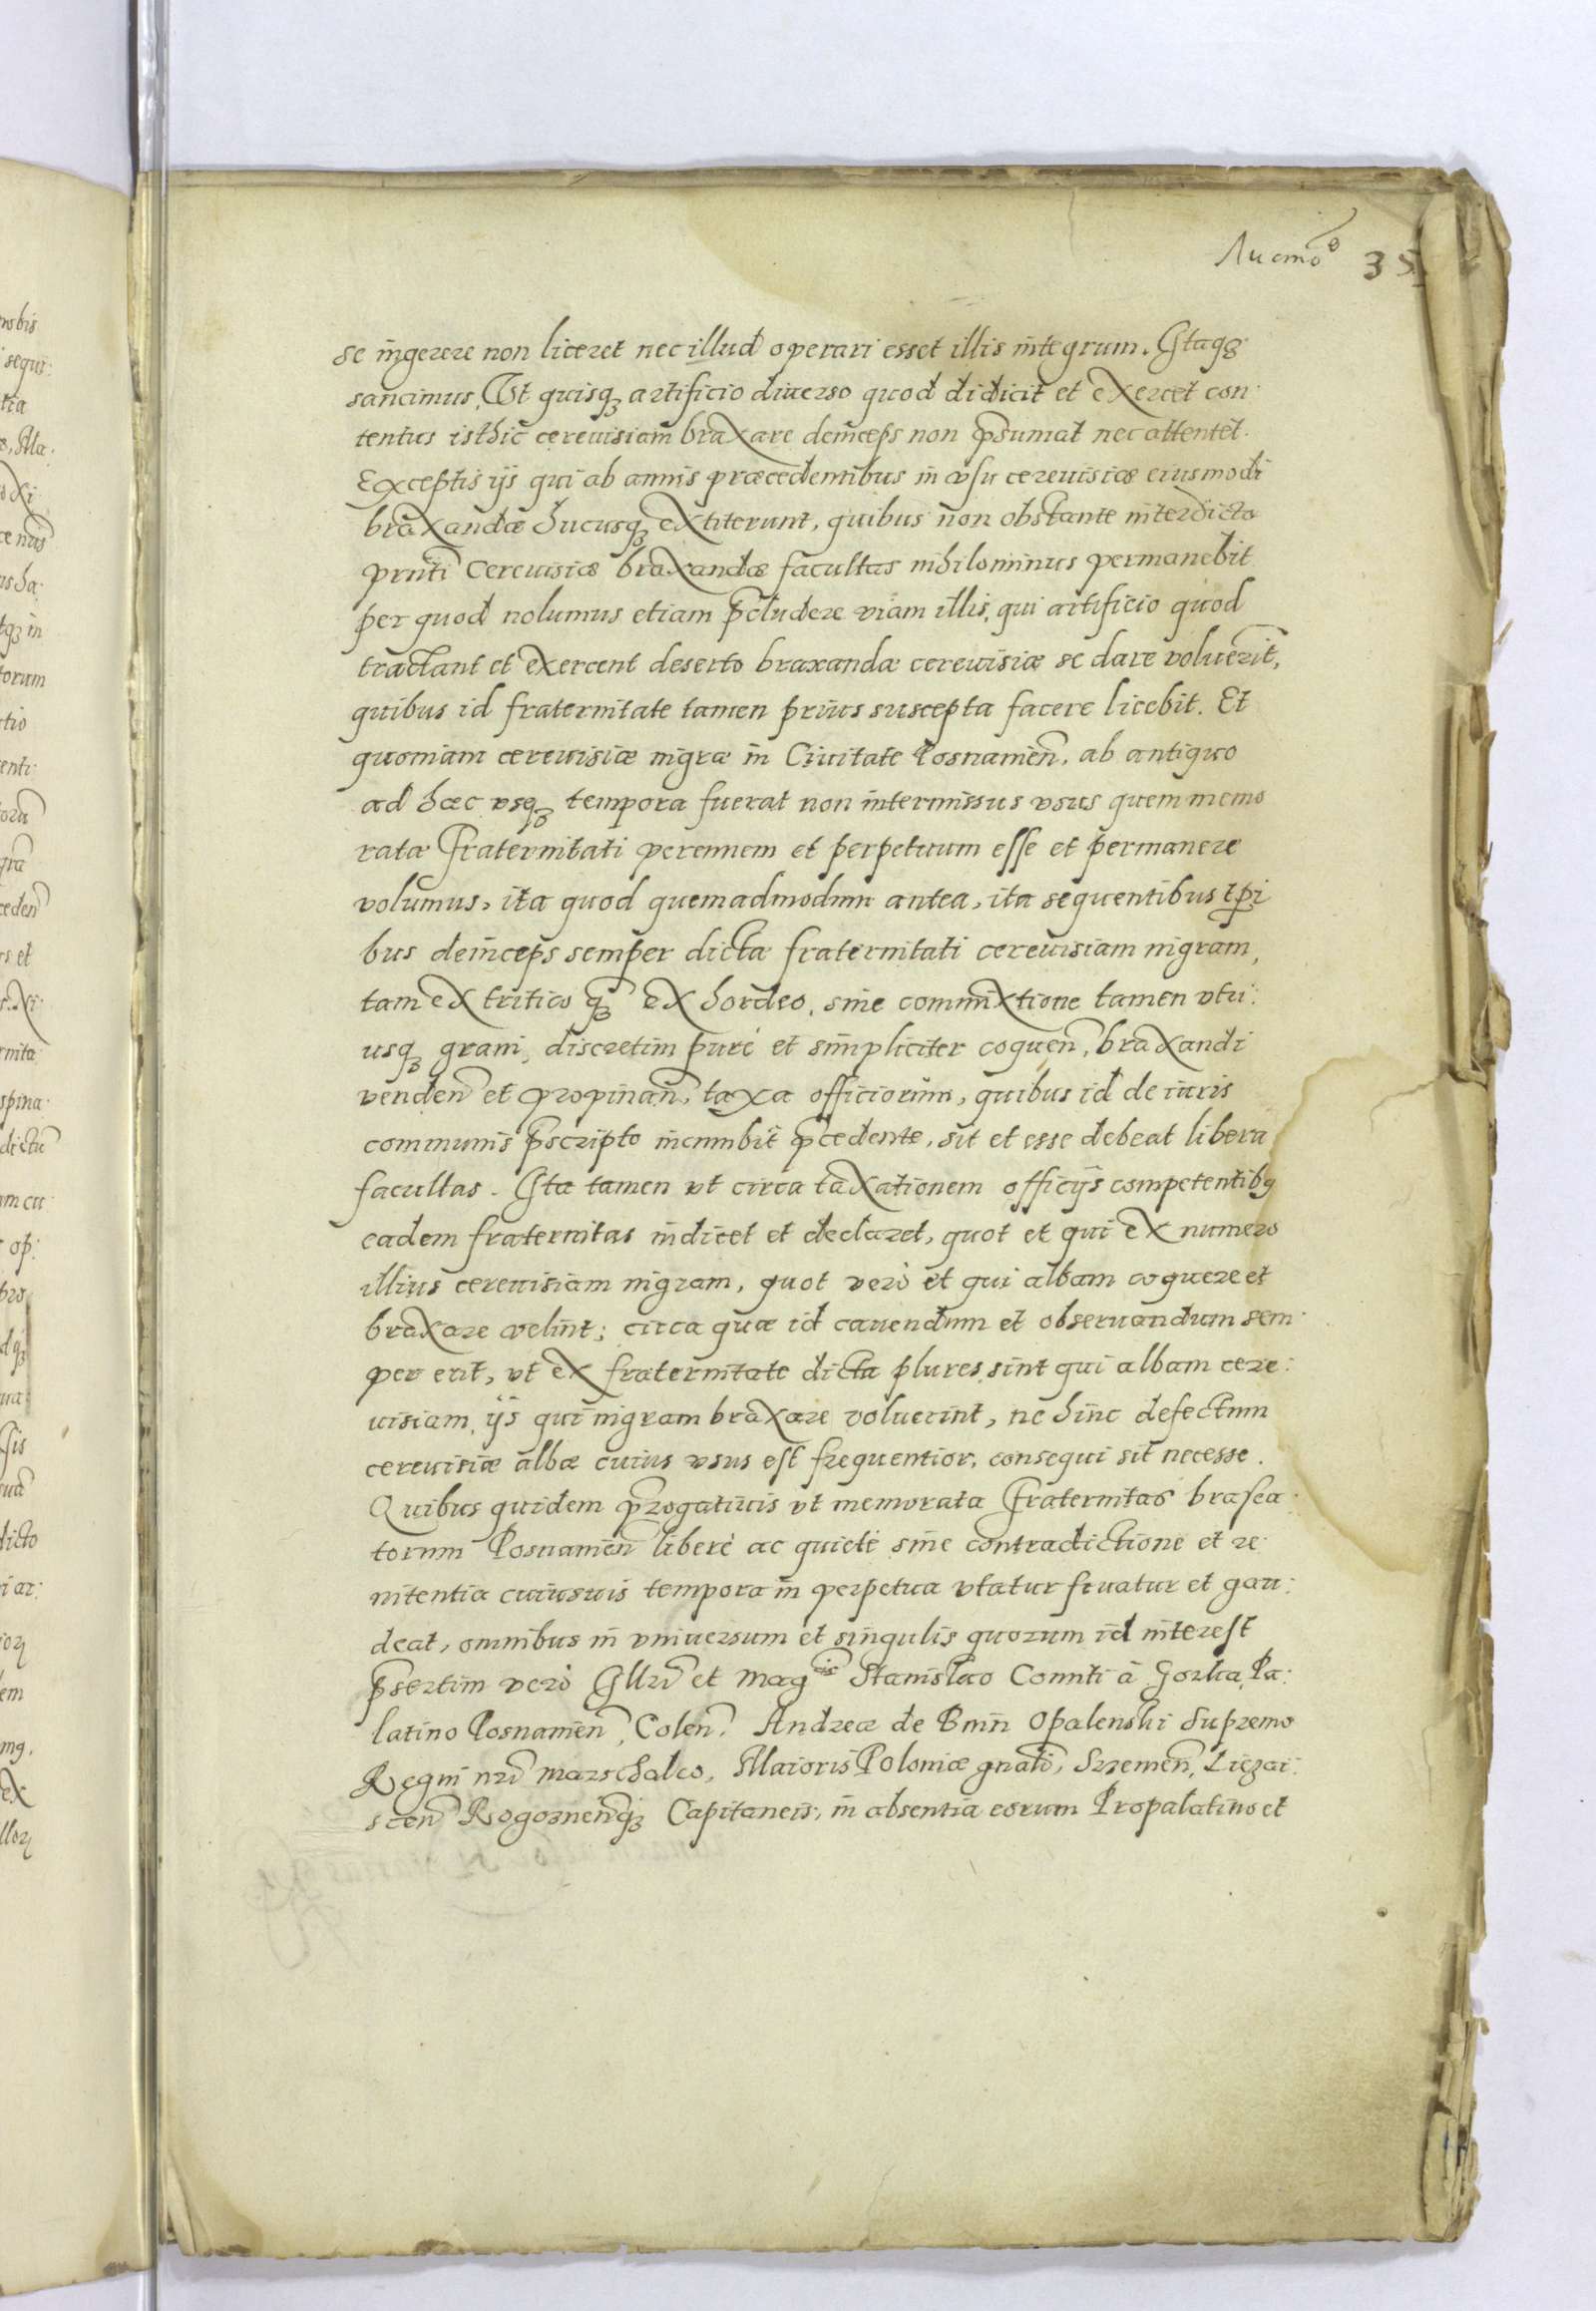 Листъ 35
se ingerere non liceret nec illud operari esset illis integrum. Itaq₃
sancimus, Vt quisq₃ artificio diuerso quod didicit et exercet con-
tentus isthic cereuisiam braxare deinceps non p̄sumat nec attentet.
Exceptis ijs qui ab annis præcedentibus in vsu cereuisiæ eiusmodi
braxandæ hucusq₃ extiterunt, quibus non obstante interdicto
pn̄ti Cereuisiæ braxandæ facultas nihilominus permanebit
per quod nolumus etiam p̄cludere viam illis, qui artificio quod
tractant et exercent deserto braxandæ cereuisiæ se dare voluerīt,
quibus id fraternitate tamen prius suscepta facere licebit. Et
quoniam cereuisiæ nigræ in Ciuitate Posnamen̄, ab antiquo
ad hæc vsq₃ tempora fuerat non intermissus vsus quem memo
ratæ Fraternitati perennem et perpetuum esse et permanere
volumus, ita quod quemadmodum antea, ita sequentibus tp̄ri
bus deinceps semper dictæ fraternitati cereuisiam nigram,
tam ex tritico q₃̄ ex hordeo, sine commixtione tamen vtri:
usq₃ grani, discretim puré et simpliciter coquen̄, braxandi
venden̄ et propinan̄, taxa officiorum, quibus id de iuris
communis p̄scripto incumbit p̄cedente, sit et esse debeat libera
facultas. Ita tamen vt circa taxationem officijs competentib₉
eadem fraternitas indicet et declaret, quot et qui ex numero
illius cereuisiam nigram, quot verò et qui albam coquere et
braxare velint; circa quæ id cauendum et obseruandum sem-
per erit, vt ex fraternitate dicta plures sint qui albam cere:
uisiam, ijs qui nigram braxare voluerint, ne hinc defectum
cereuisiæ albæ cuius vsus est frequentior, consequi sit necesse.
Quibus quidem p̄rogatiuis vt memorata Fraternitas brasea-
torum Posnamen̄ liberè ac quietè sine contradictione et re-
nitentia cuiusuis tempora in perpetua vtatur fruatur et gau:
deat, omnibus in vniuersum et singulis quorum id interest
p̄sertim verò Illri̅ et Mag^cis Stanislao Comiti à Gorka, Pa:
latino Posnamen̄, Colen̄. Andreæ de Bnin Opalenski Supremo
Regni nr̄i Marschalco, Maioris Poloniæ gn̄ali, Sremen̄, Liezai:
scen̄ Rogoznen̄q₃ Capitaneis, in absentia eorum Propalatino et